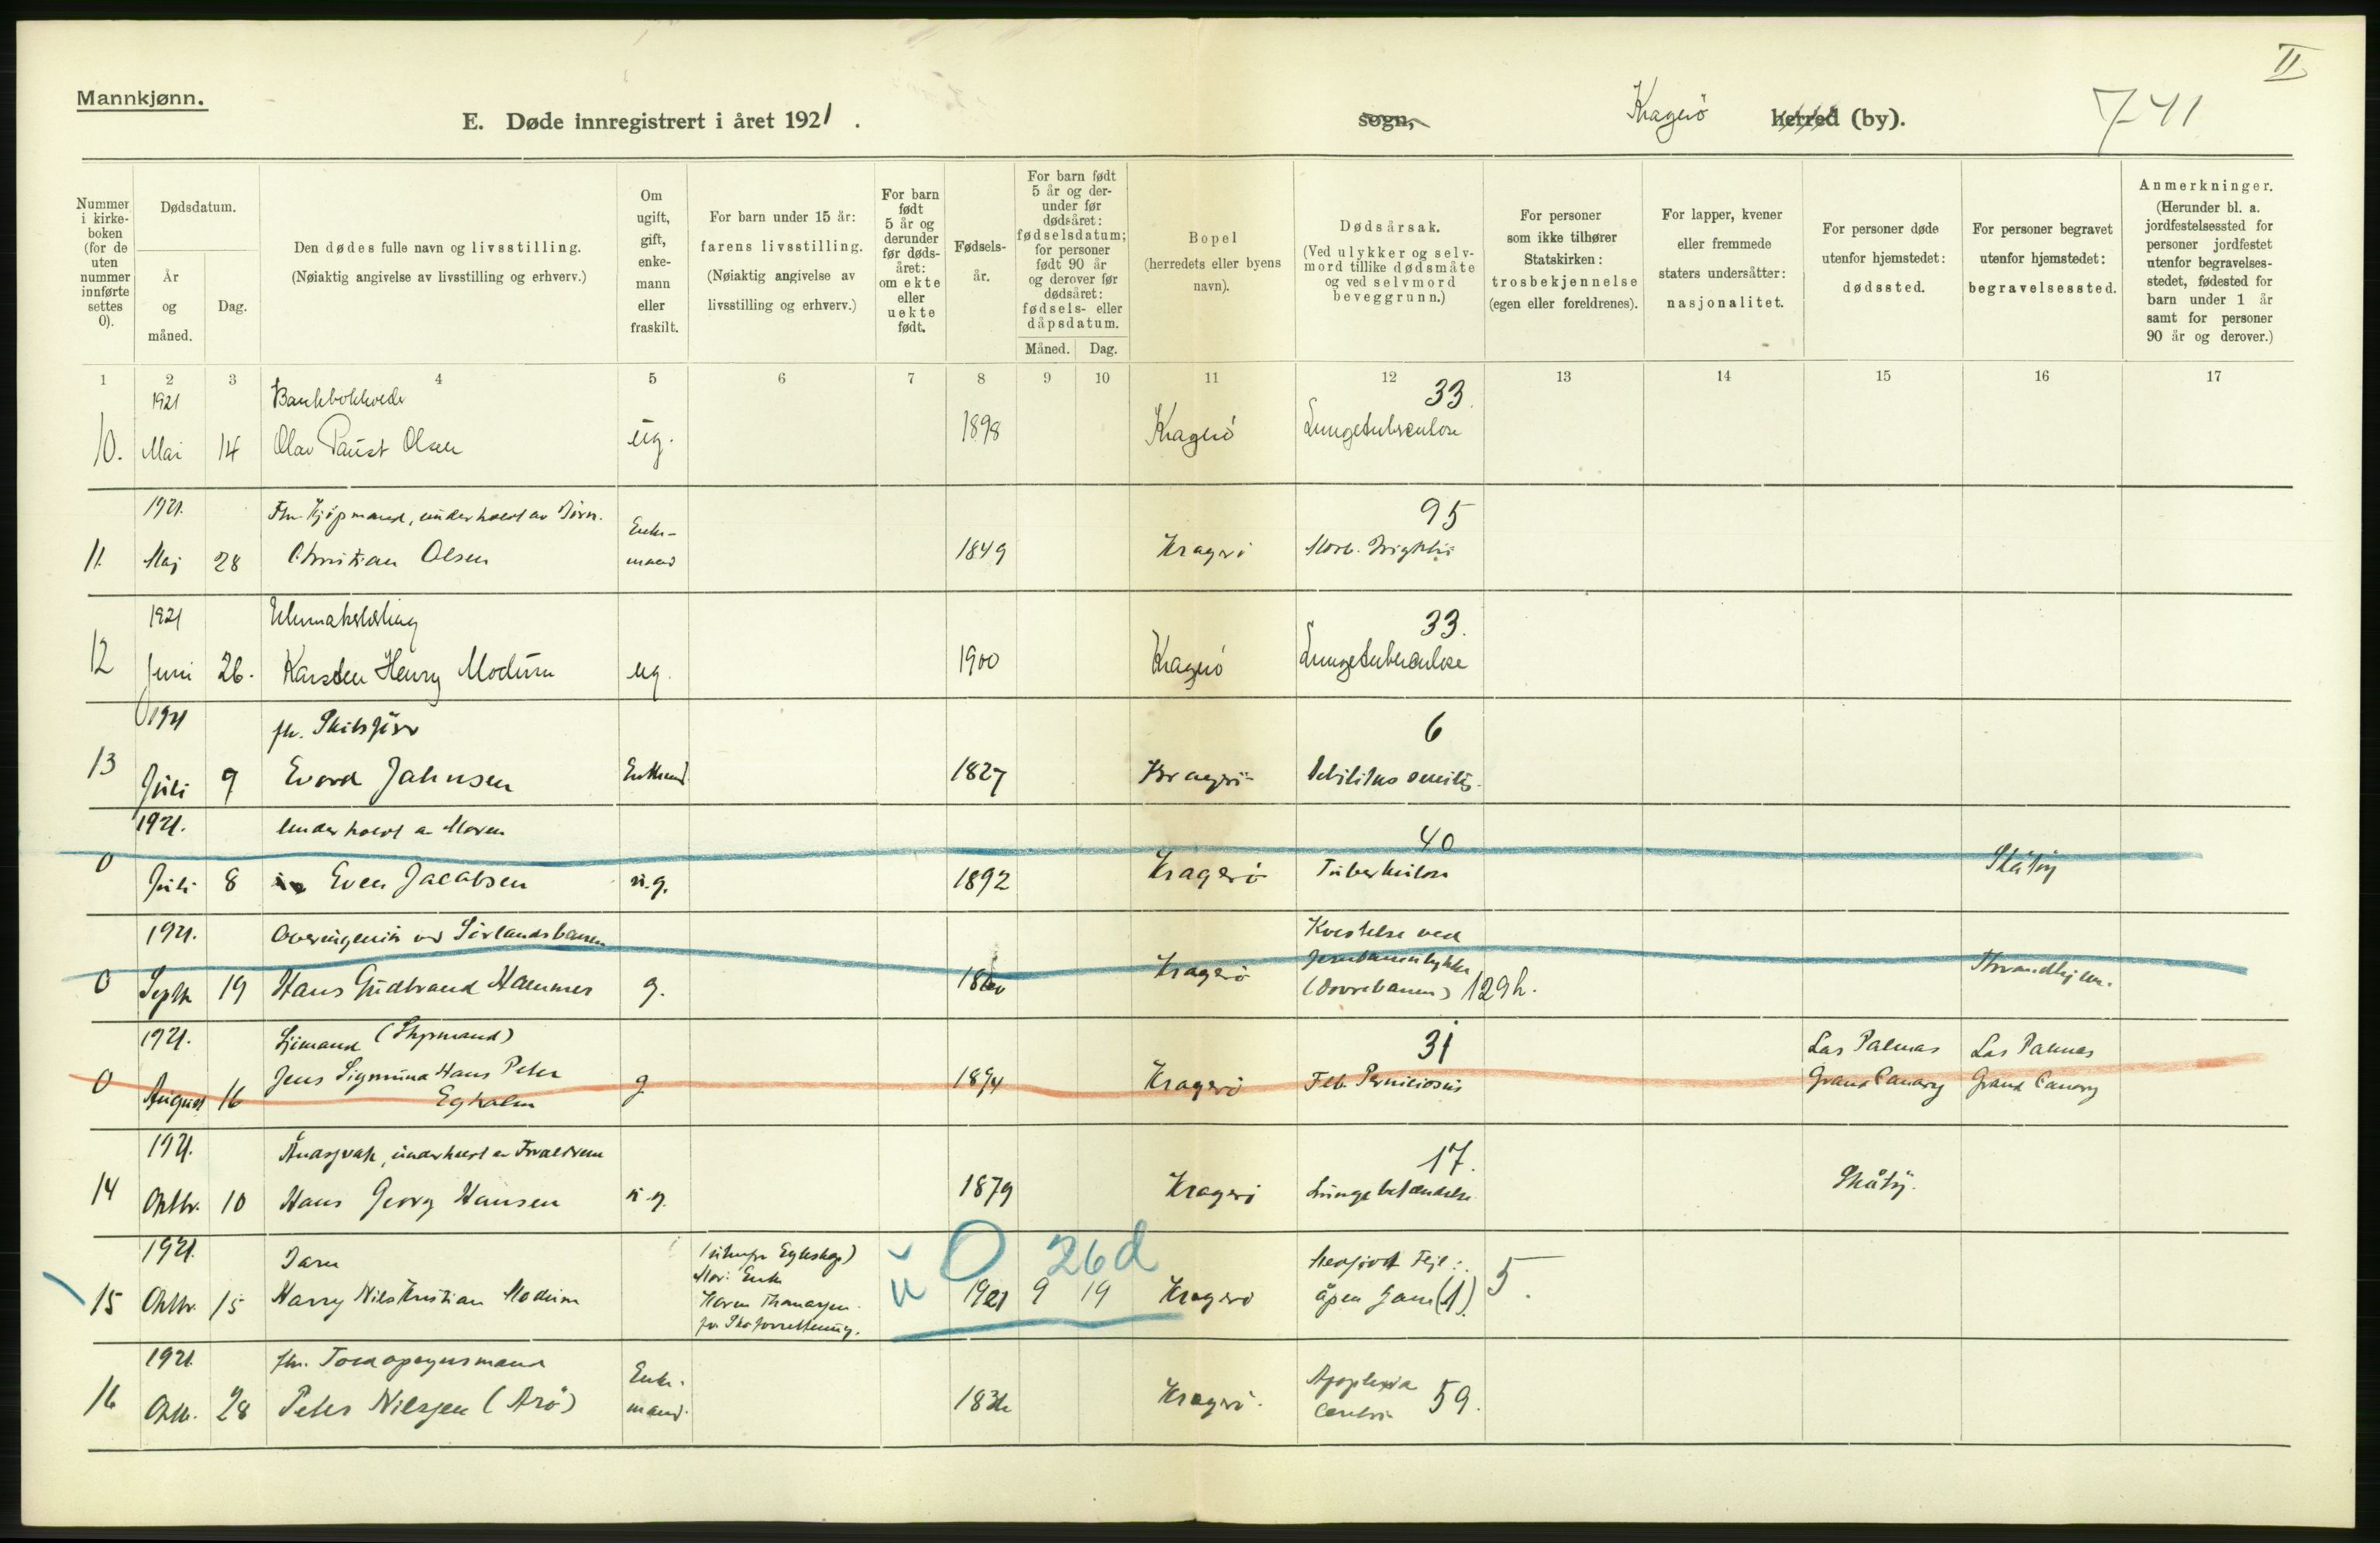 II
Mannkjønn.
E. Døde innregistrert i året 1921.
sogn,
Kragerö
herred (by).
741
Nummer i kirke-boken (for de uten nummer innførte settes 0).
Dødsdatum.
År og måned.
Dag.
Den dødes fulle navn og livsstilling.
(Nøiaktig angivelse av livsstilling og erhverv.)
Om ugift, gift, enke-mann eller fraskilt.
For barn under 15 år:
farens livsstilling.
(Nøiaktig angivelse av livsstilling og erhverv.)
For barn født 5 år og derunder før døds-året: om ekte eller uekte født.
Fødsels-år.
For barn født 5 år og der-under før dødsåret: fødselsdatum; for personer født 90 år og derover før dødsåret: fødsels- eller dåpsdatum.
Måned. Dag.
Bopel
(herredets eller byens navn).
Dødsårsak.
(Ved ulykker og selv-mord tillike dødsmåte og ved selvmord beveggrunn.)
For personer som ikke tilhører Statskirken: trosbekjennelse (egen eller foreldrenes).
For lapper, kvener eller fremmede staters undersåtter: nasjonalitet.
For personer døde utenfor hjemstedet: dødssted.
For personer begravet utenfor hjemstedet: begravelsessted.
Anmerkninger.
(Herunder bl. a. jordfestelsessted for personer jordfestet utenfor begravelses-stedet, fødested for barn under 1 år samt for personer 90 år og derover.)
1 2 3 4 5 6 7 8 9 10 11 12 13 14 15 16 17
1921 33
10. Mai 14 Olav Paust Olsen ug. 1898 Kragerö Lungetuberculose
1921. Fhv. Kjöpmand, underholdt av Börn. Enke- 95
11. Maj 28 Christian Olsen mand 1849 Kragerö Morb. Brightii
1921 33.
12 Juni 26. Karsten Henry Modum ug. 1900 Kragerö Lungetuberculose
1921 fh. 6
13 Juli 9 Evord Jahnsen Enkemd. 1827 Kragerö Debilitas senilis.
1921. Underholdt av Moren 40
0 Juli 8 Even Jacobsen u.g. 1892 Kragerö Tuberkulose Skåtöy
1921. Overingeniör ved Sörlandsbanen Kvestelse ved
0 Septb 19 Hans Gudbrand Hammer g. Kragerö Jernbaneulykke
(Dovrebanen) 129h. Throndhjem.
1921. Sjömand (Styrmand) 31 Las Palmas Las Palmas
0 August 16 Jens Sigmund Hans Peter g 1894 Kragerö Feb. Perniciosus Grand Canary Grand Canary
Egholm
1921. Åndssvak, underholdt av Forældrene 17.
14 Oktbr. 10 Hans Georg Hansen u.g. 1879 Kragerö Lungebetændelse. Skåtöy.
1921. Barn 0 26d
15 Oktbr. 15 Harry Nils Kristian Modum Mor: Enke
Karen Thomassen u 1921 9 19 Kragerö Medfödt Fejl:
åpen Gane (1). 5.
1921. fhv. Toldopsynsmand Enke- Apoplexia
16 Oktb. 28 Peter Nilssen (Arö) mand. 1836 Kragerö. Cerebri 59.